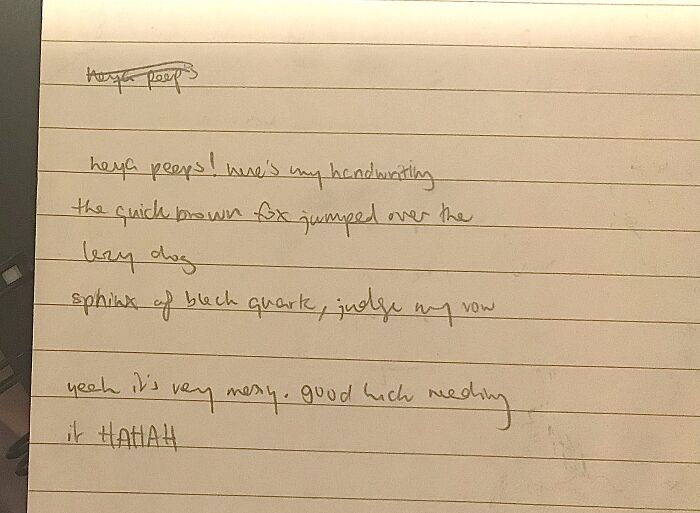 heya peeps
heya peeps! here's my handwriting
the quick brown fox jumped over the
lazy dog
sphinx of black quartz, judge my vow
yeah it's very messy. good luck reading
it HAHAH